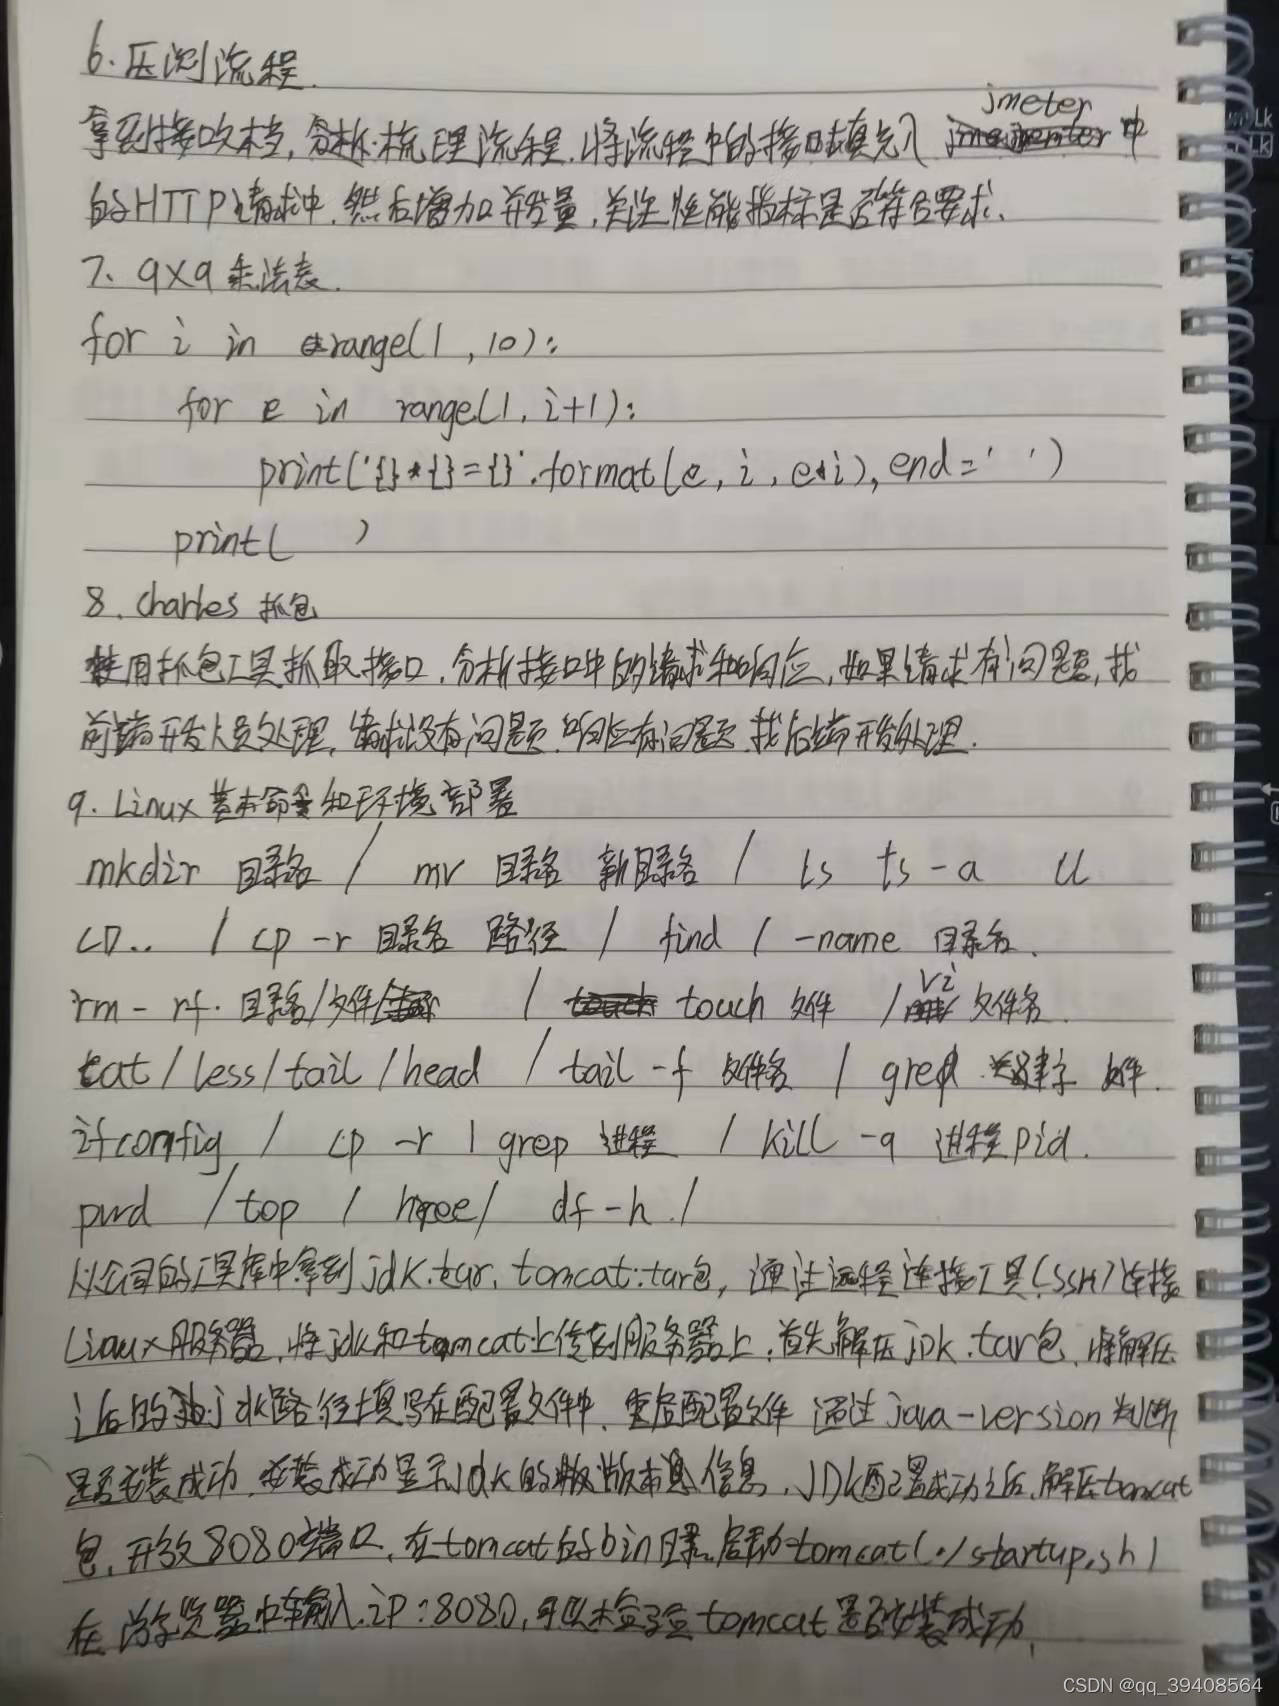 6.压测流程.
拿到接口文档,分析、梳理流程.将流程中的接口填充入 jmeter 中
的HTTP请求中.然后增加并发量,关注性能指标是否符合要求.
7、9X9乘法表.
for i in range(1,10):
for e in range(1,i+1):
print('{}*{}={}'.format(e,i,e*i),end=' ')
print( )
8.Charles 抓包
使用抓包工具抓取接口.分析接口中的请求和响应,如果请求有问题,找
前端开发人员处理,请求没有问题.响应有问题.找后端开发处理.
9.Linux基本命令和环境部署
mkdir 目录名 / mv 目录名 新目录名 / ls ls-a ll
CD.. / cp -r 目录名 路径 / find / -name 目录名.
rm-rf.目录名/文件 / touch 文件 / vi 文件名.
cat/less/tail/head / tail -f 文件名 / grep 关键字 文件.
ifconfig / cp -r | grep 进程 / kill -9 进程pid.
pwd /top / free/ df-h./
从公司的工具库中拿到jdk.tar.tomcat.tar包,通过远程连接工具(SSH)连接
Linux服务器,将jdk和tomcat上传到服务器上.首先解压jdk.tar包.将解压
过后的jdk路径填写在配置文件中.重启配置文件 通过java-version判断
是否安装成功.安装成功显示jdk的版本信息.JDK配置成功之后.解压tomcat
包,开放8080端口.在tomcat的bin目录启动tomcat(./startup.sh)
在浏览器中输入.ip:8080,可以检验tomcat是否安装成功.
CSDN @qq_39408564